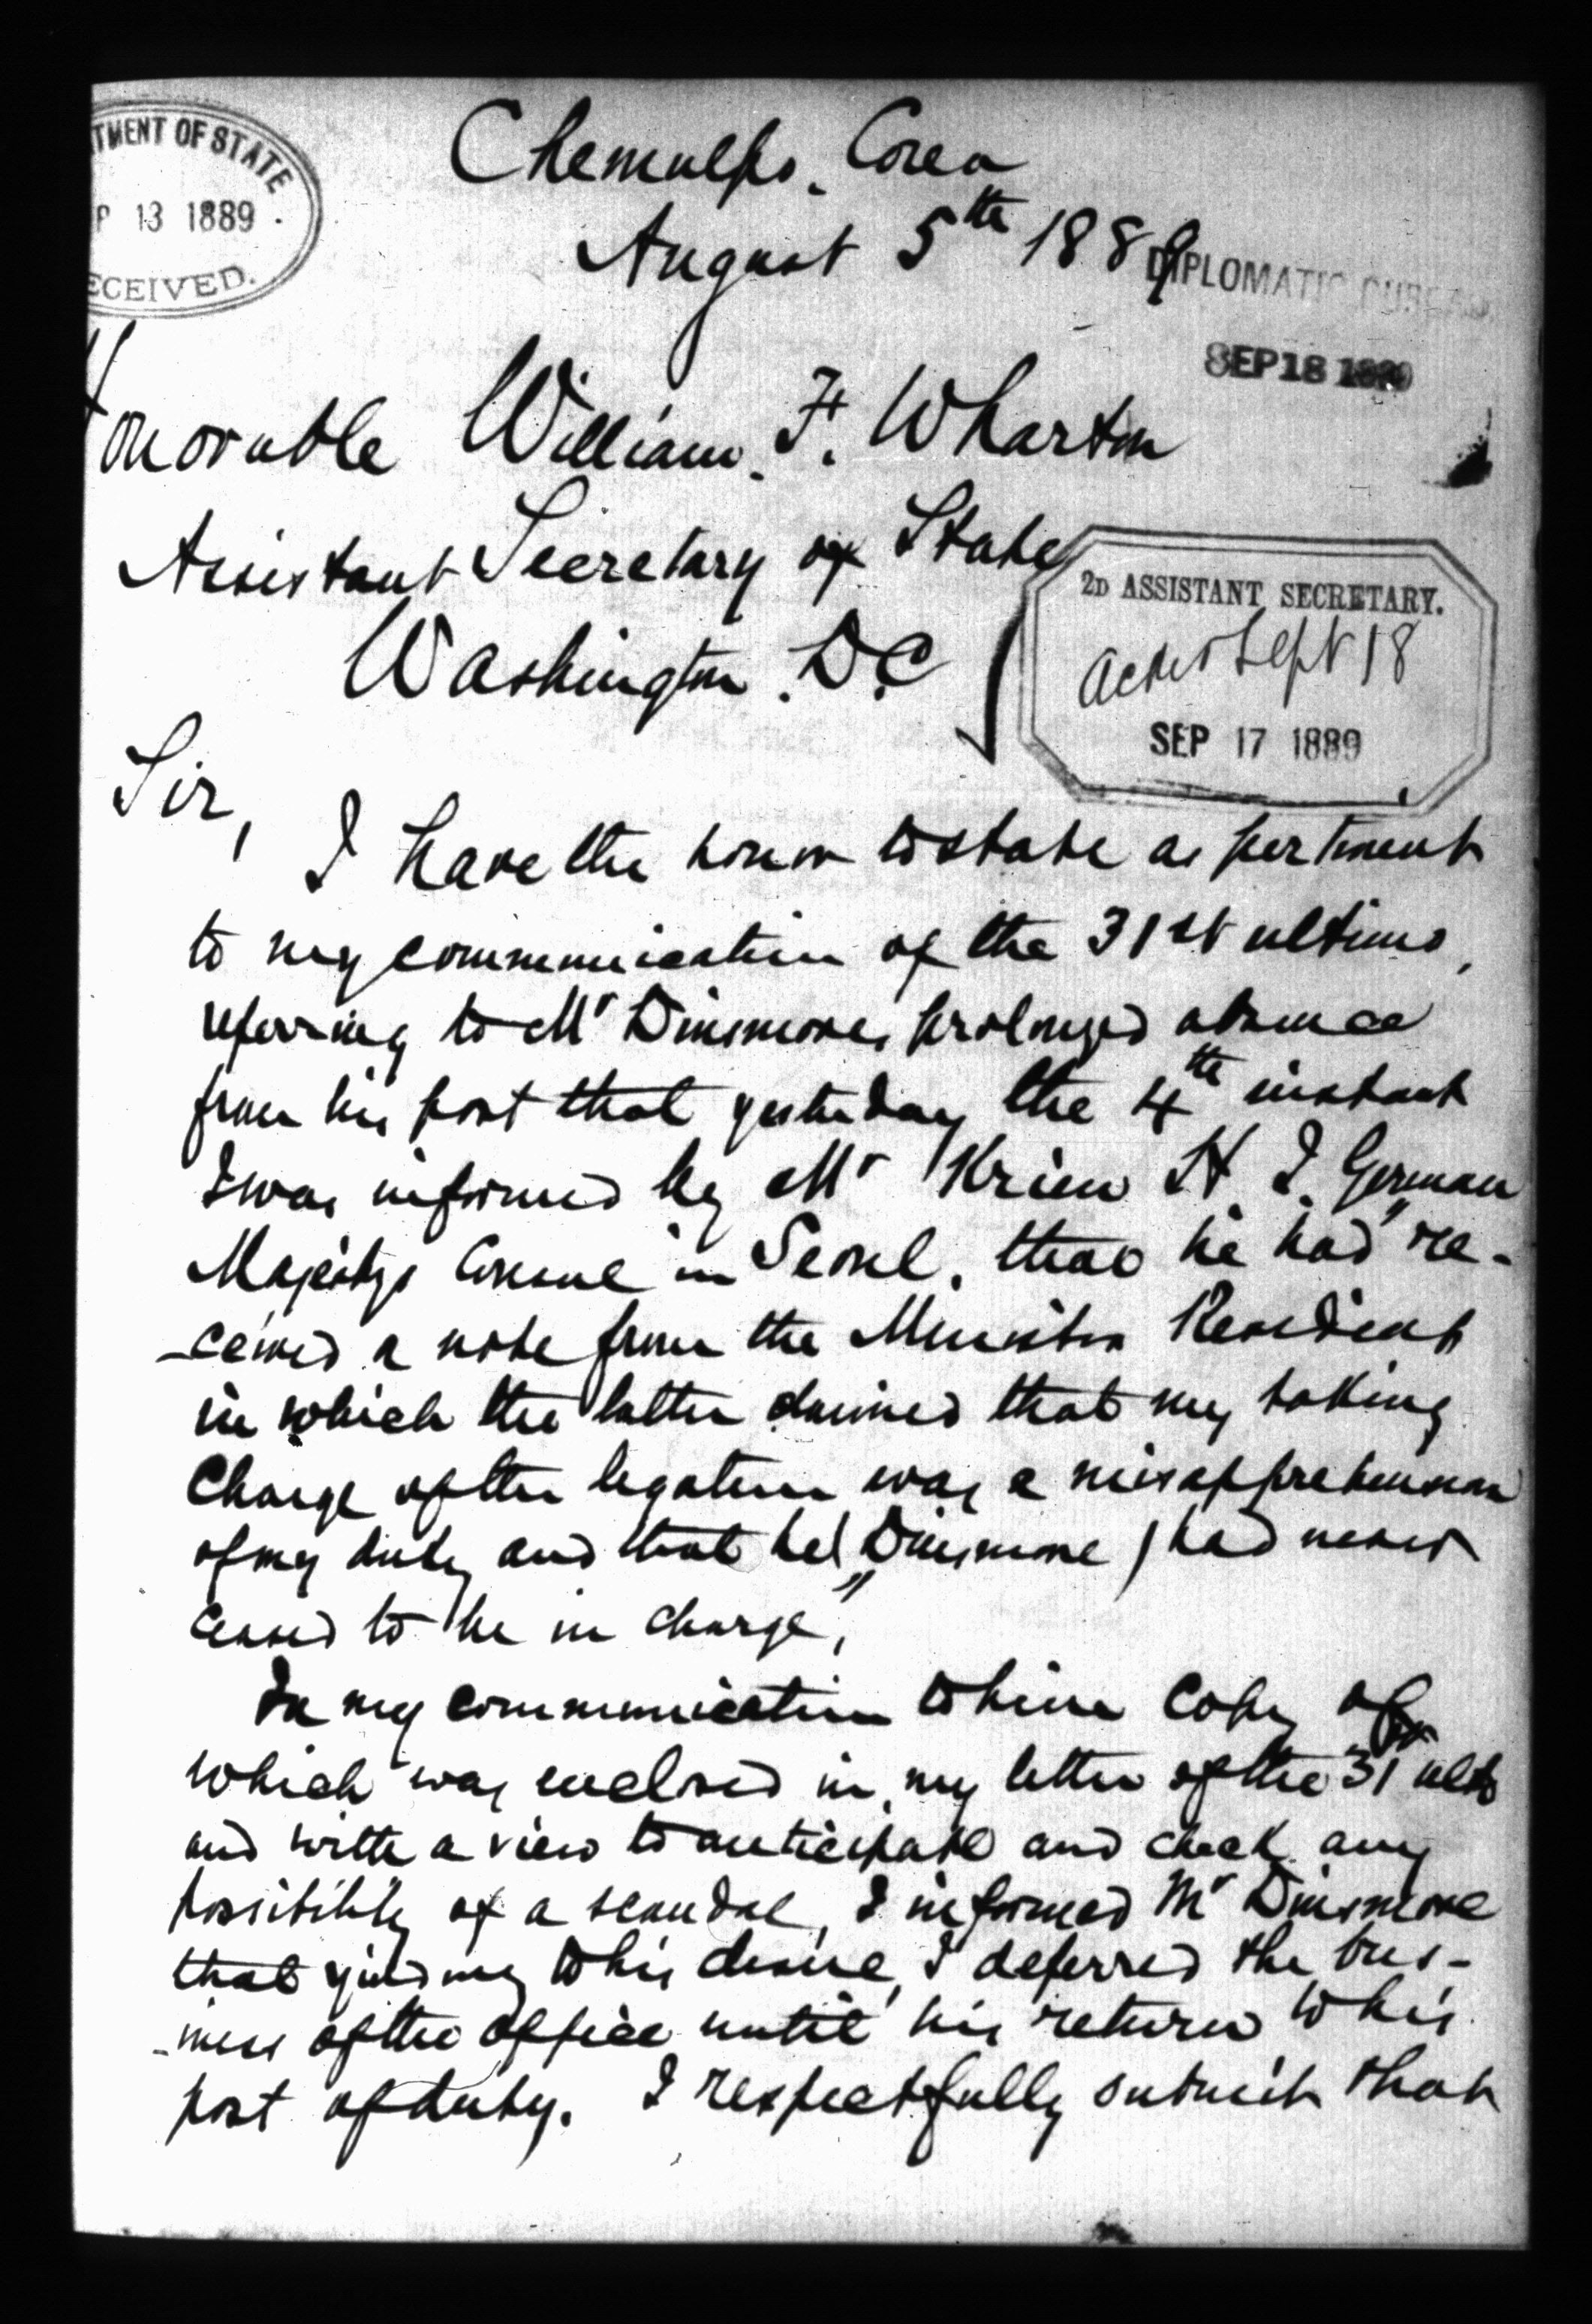 TMENT OF STATE
P 13 1889
ECEIVED.
Chemulpo. Corea
August 5th 1889
DIPLOMATIC BUREAU.
SEP 18 1889
Honorable William. F. Wharton
Assistant Secretary of State
Washington. D.C
2D ASSISTANT SECRETARY.
Sept 18
SEP 17 1889
Sir,
I have the honor to state as pertinent
to my communication of the 31st ultimo,
referring to Mr Dinsmores prolonged absence
from his post that yesterday the 4th instant
I was informed by Mr Krien H. I. German
Majestys Consul in Seoul, that he had "re-
-ceived a note from the Minister Resident
in which the latter claimed that my taking
Charge of the legation was a misapprehension
of my duty and that he (Dinsmore) had never
ceased to be in charge",
In my communication to him Copy of
which was enclosed in my letter of the 31st ulto
and with a view to anticipate and check any
possibility of a scandal, I informed Mr Dinsmore
that yielding to his desire, I deferred the bus-
-iness of the office until his return to his
post of duty. I respectfully submit that